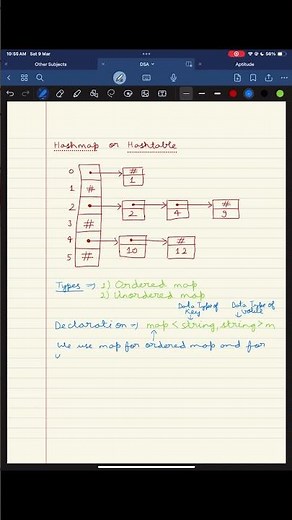 10:55 AM Sat 9 Mar
56%
Other Subjects
DSA
Aptitude
Hashmap or Hashtable
0
#
1
1
#
2
#
2
4
9
3
#
4
#
10
12
5
#
Types ⇒ 1) Ordered map
2) Unordered map
Data Type of Key
Data Type of Value
Declaration ⇒ map < string, string > m
We use map for ordered map and for